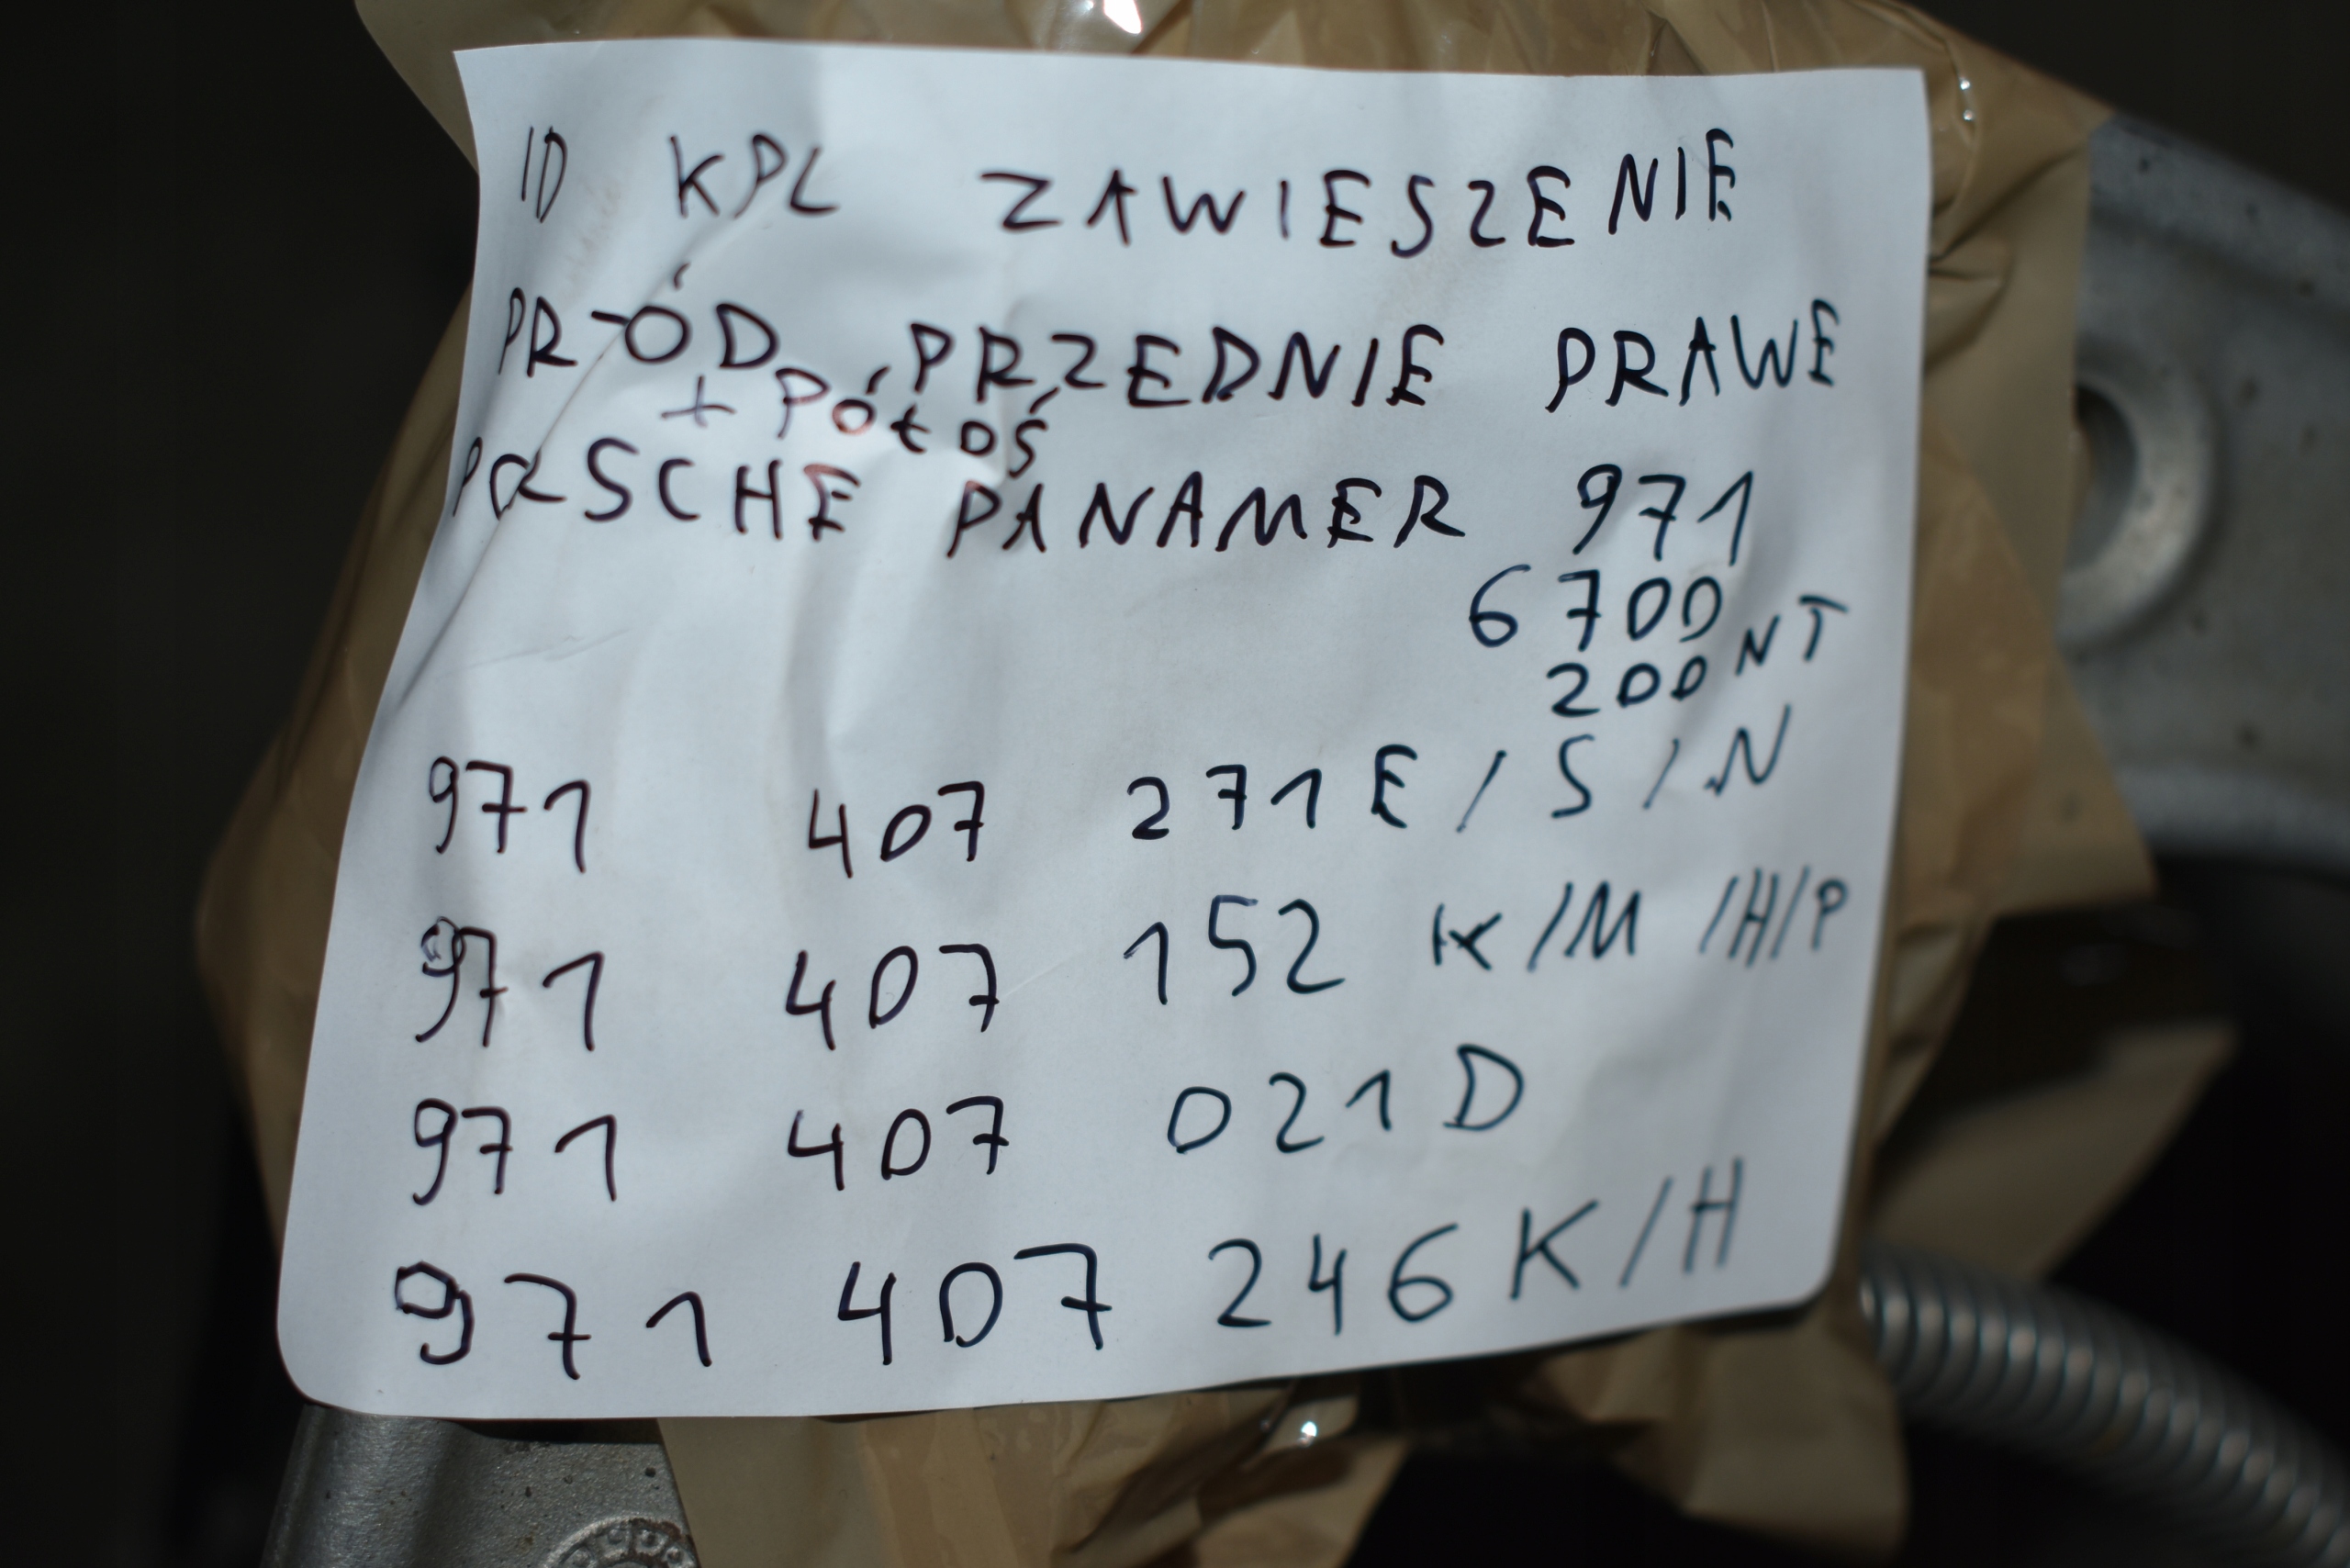 ID KPL ZAWIESZENIE
PRZÓD, PRZEDNIE PRAWE
+ PÓŁOŚ
PORSCHE PANAMER 971
6700
200 NT
971 407 271 E / S / N
971 407 152 K / M / H / P
971 407 021 D
971 407 246 K / H